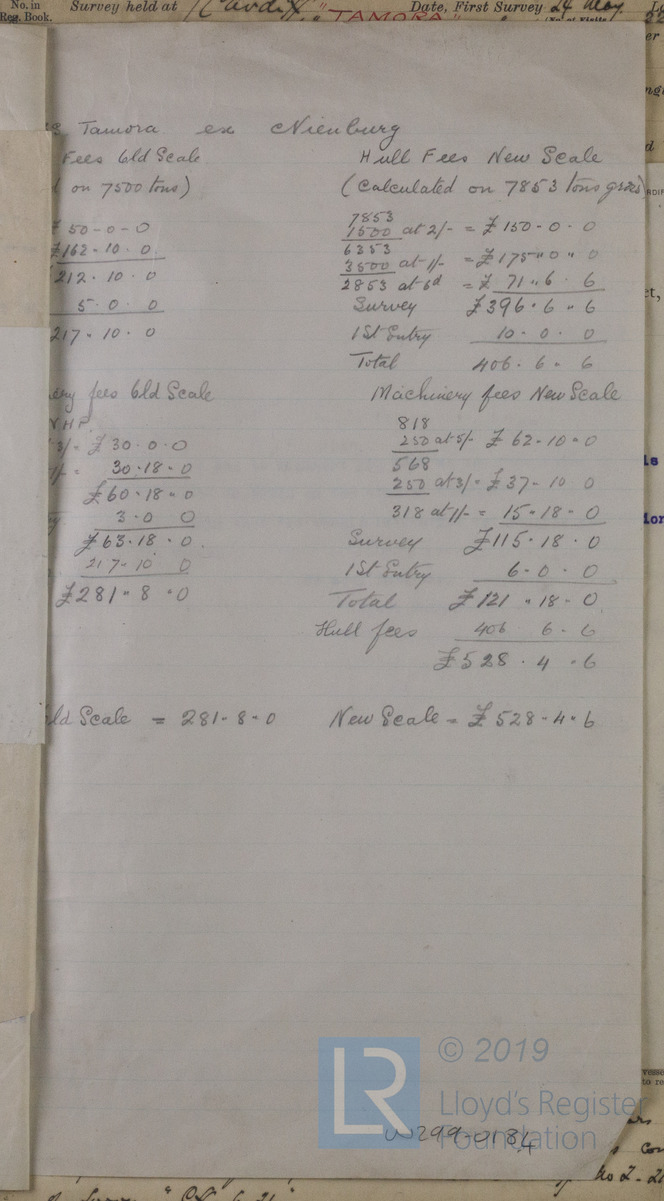 No. in
Reg. Book.
Survey held at Cardiff
"TAMORA"
Date, First Survey 24 May
Tamora ex Nienburg
Fees Old Scale
on 7500 tons)
£ 50-0-0
£162-10.0.
212.10.0
5.0.0
217.10.0
Hull Fees New Scale
(Calculated on 7853 tons gross)
7853
1500 at 2/- = £150-0-0
6353
3500 at 1/- = £175"0"0
2853 at 6d = £ 71"6.6
Survey £396.6"6
1st Entry 10.0.0
Total 406.6.6
fees Old Scale
N.H.P.
3/- £30.0.0
1/- = 30.18.0
£60.18"0
3.0 0
£63.18.0.
217-10 0
£281"8"0
Machinery fees New Scale
818
250 at 5/- £ 62-10=0
568
250 at 3/- £37-10 0
318 at 1/- = 15"18-0
Survey £115.18.0
1st Entry 6-0.0
Total £121"18-0
Hull fees 406 6-6
£528.4.6
Old Scale = 281-8-0
New Scale = £528-4"6
© 2019
LR
Lloyd's Register
Foundation
W299-0134